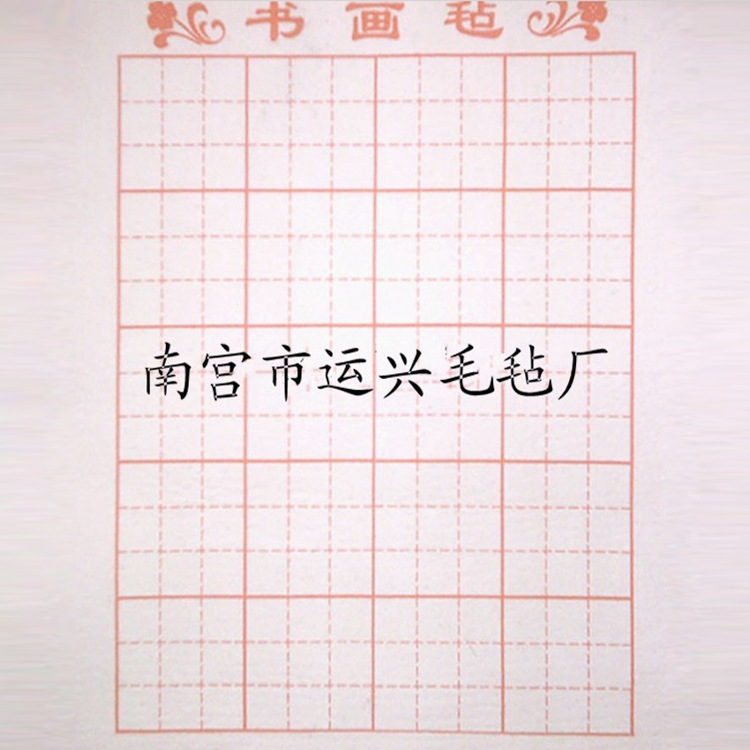 书画毡
南宫市运兴毛毡厂